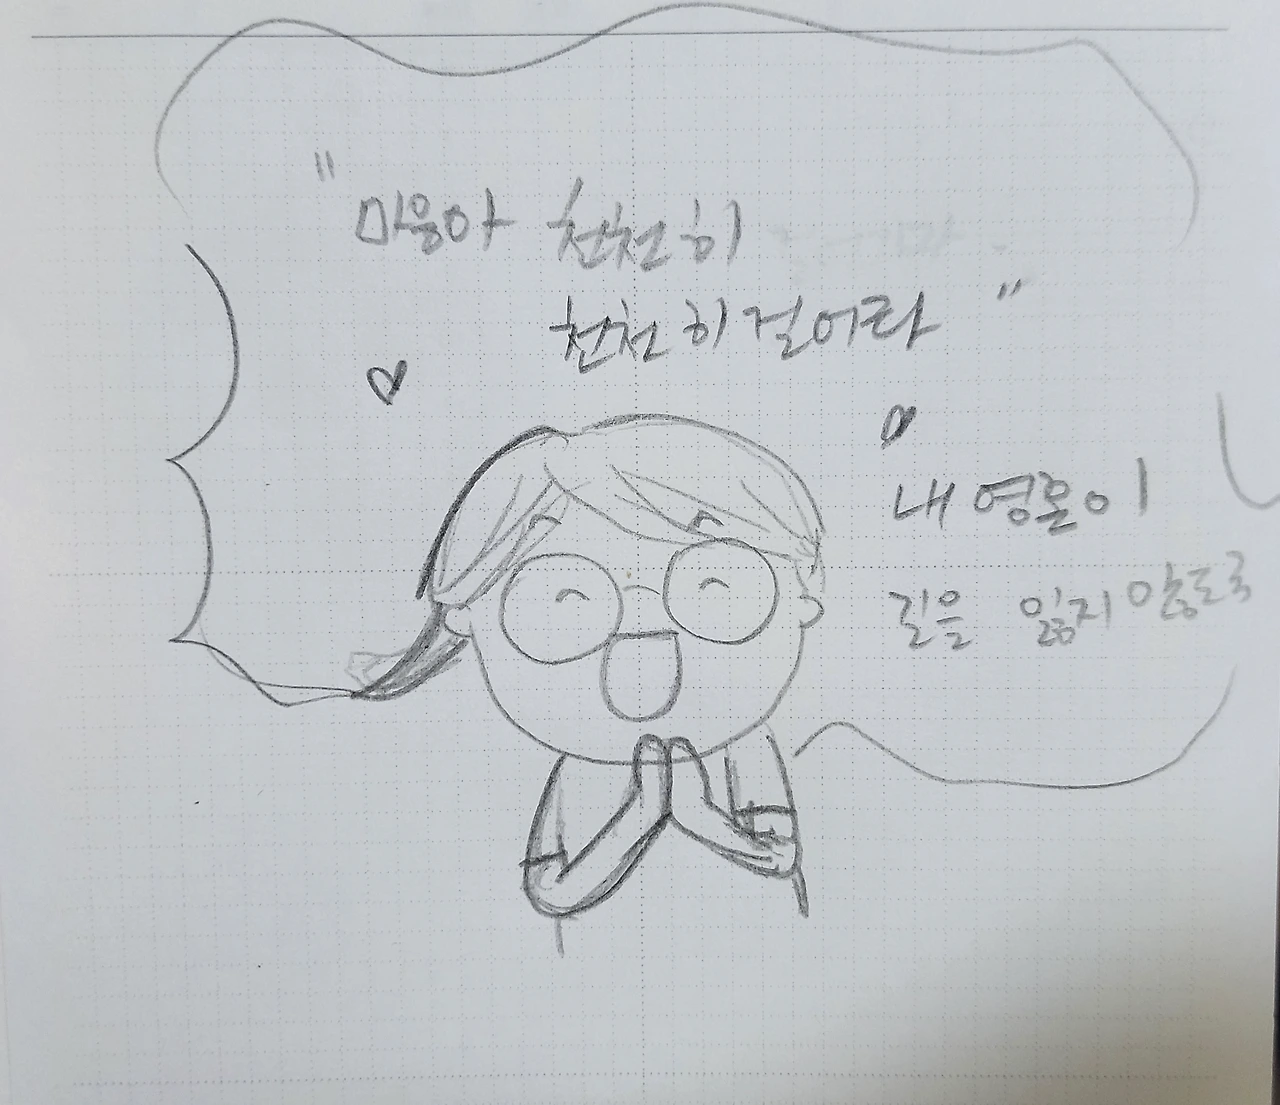 "마음아 천천히
천천히 걸어라"
내 영혼이
길을 잃지 않도록